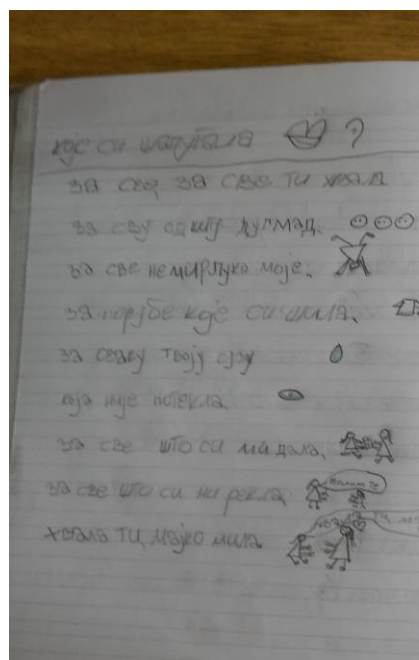 које си шапутала ?
за све за све ти хвала
за сву од кшу дугмад.
за све немирлуко моје.
за порубе кде си шила.
за сваку твоју сузу
која није потекла
за све што си ми дала,
за све што си ми рекла
хвала ти мајко мила